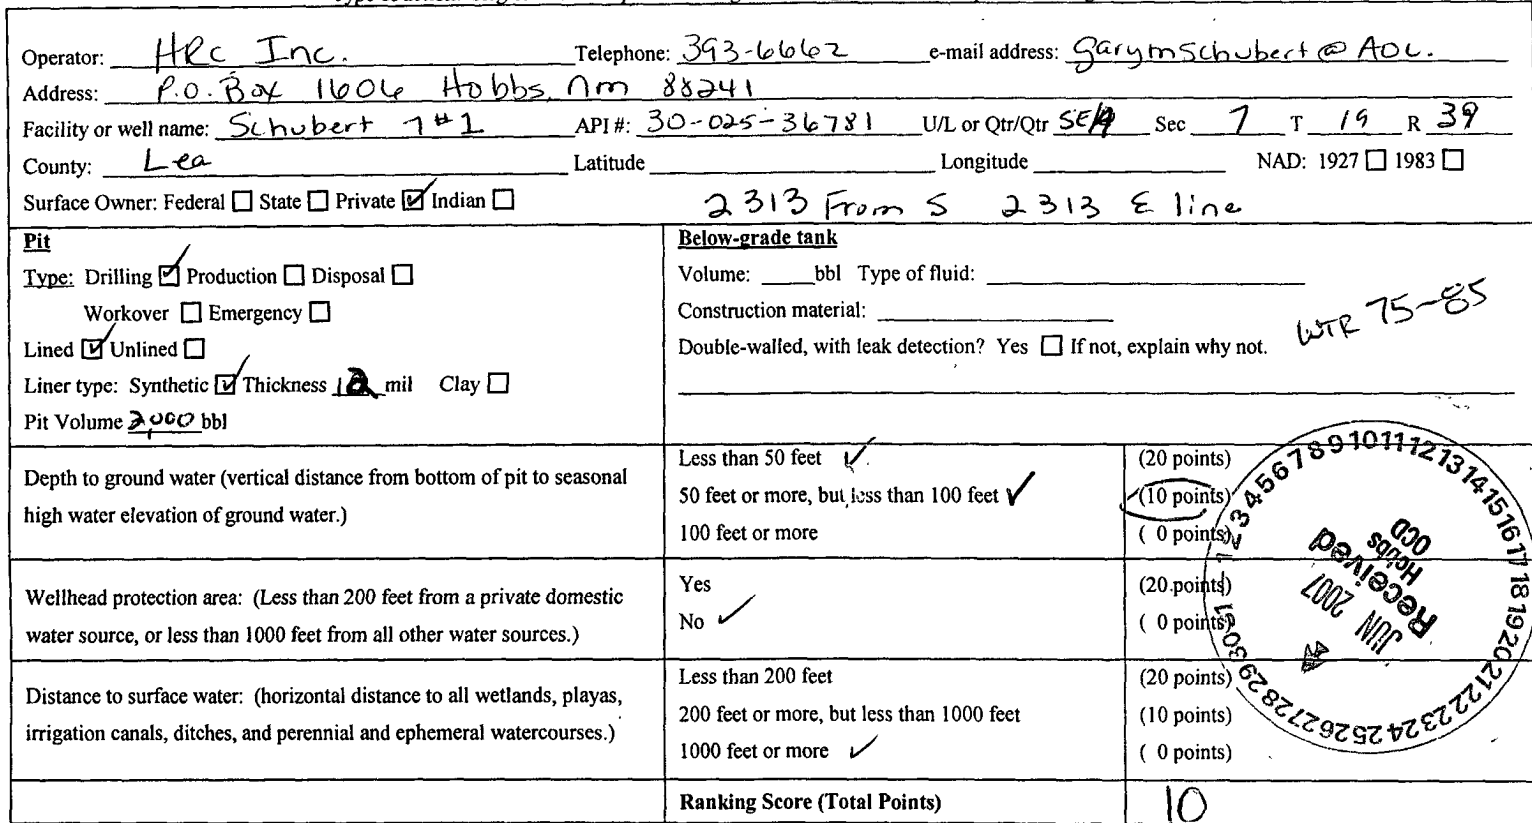 Operator: HRC Inc. Telephone: 393-6662 e-mail address: garymschubert@AOL.
Address: P.O. Box 1606 Hobbs, nm 88241
Facility or well name: Schubert 7 #1 API #: 30-025-36781 U/L or Qtr/Qtr SE/4 Sec 7 T 19 R 39
County: Lea Latitude Longitude NAD: 1927 ☐ 1983 ☐
Surface Owner: Federal ☐ State ☐ Private ☑ Indian ☐ 2313 From S 2313 E line
Pit
Type: Drilling ☑ Production ☐ Disposal ☐
Workover ☐ Emergency ☐
Lined ☑ Unlined ☐
Liner type: Synthetic ☑ Thickness 12 mil Clay ☐
Pit Volume 2,000 bbl
Below-grade tank
Volume: ____bbl Type of fluid:
Construction material:
Double-walled, with leak detection? Yes ☐ If not, explain why not.
WTR 75-85
Depth to ground water (vertical distance from bottom of pit to seasonal
high water elevation of ground water.)
Less than 50 feet ✓ (20 points)
50 feet or more, but less than 100 feet ✓ (10 points)
100 feet or more ( 0 points)
Wellhead protection area: (Less than 200 feet from a private domestic
water source, or less than 1000 feet from all other water sources.)
Yes (20 points)
No ✓ ( 0 points)
Distance to surface water: (horizontal distance to all wetlands, playas,
irrigation canals, ditches, and perennial and ephemeral watercourses.)
Less than 200 feet (20 points)
200 feet or more, but less than 1000 feet (10 points)
1000 feet or more ✓ ( 0 points)
Ranking Score (Total Points) 10
1 2 3 4 5 6 7 8 9 10 11 12 13 14 15 16 17 18 19 20 21 22 23 24 25 26 27 28 29 30 31
JUN 2007
Received
Hobbs
OCD